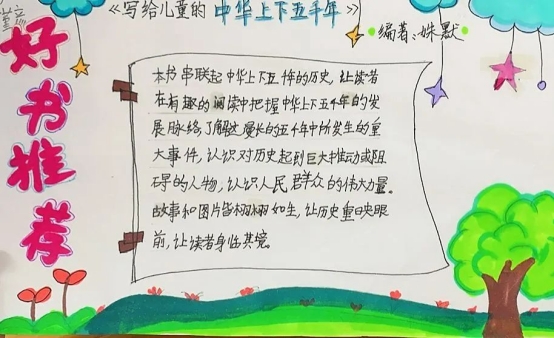 《写给儿童的中华上下五千年》
编著：姝默
好书推荐
本书串联起中华上下五千年的历史，让读者
在有趣的阅读中把握中华上下五千年的发
展脉络，了解这漫长的五千年中所发生的重
大事件，认识对历史起到巨大推动或阻
碍的人物，认识人民群众的伟大力量。
故事和图片皆栩栩如生，让历史重映眼
前，让读者身临其境。